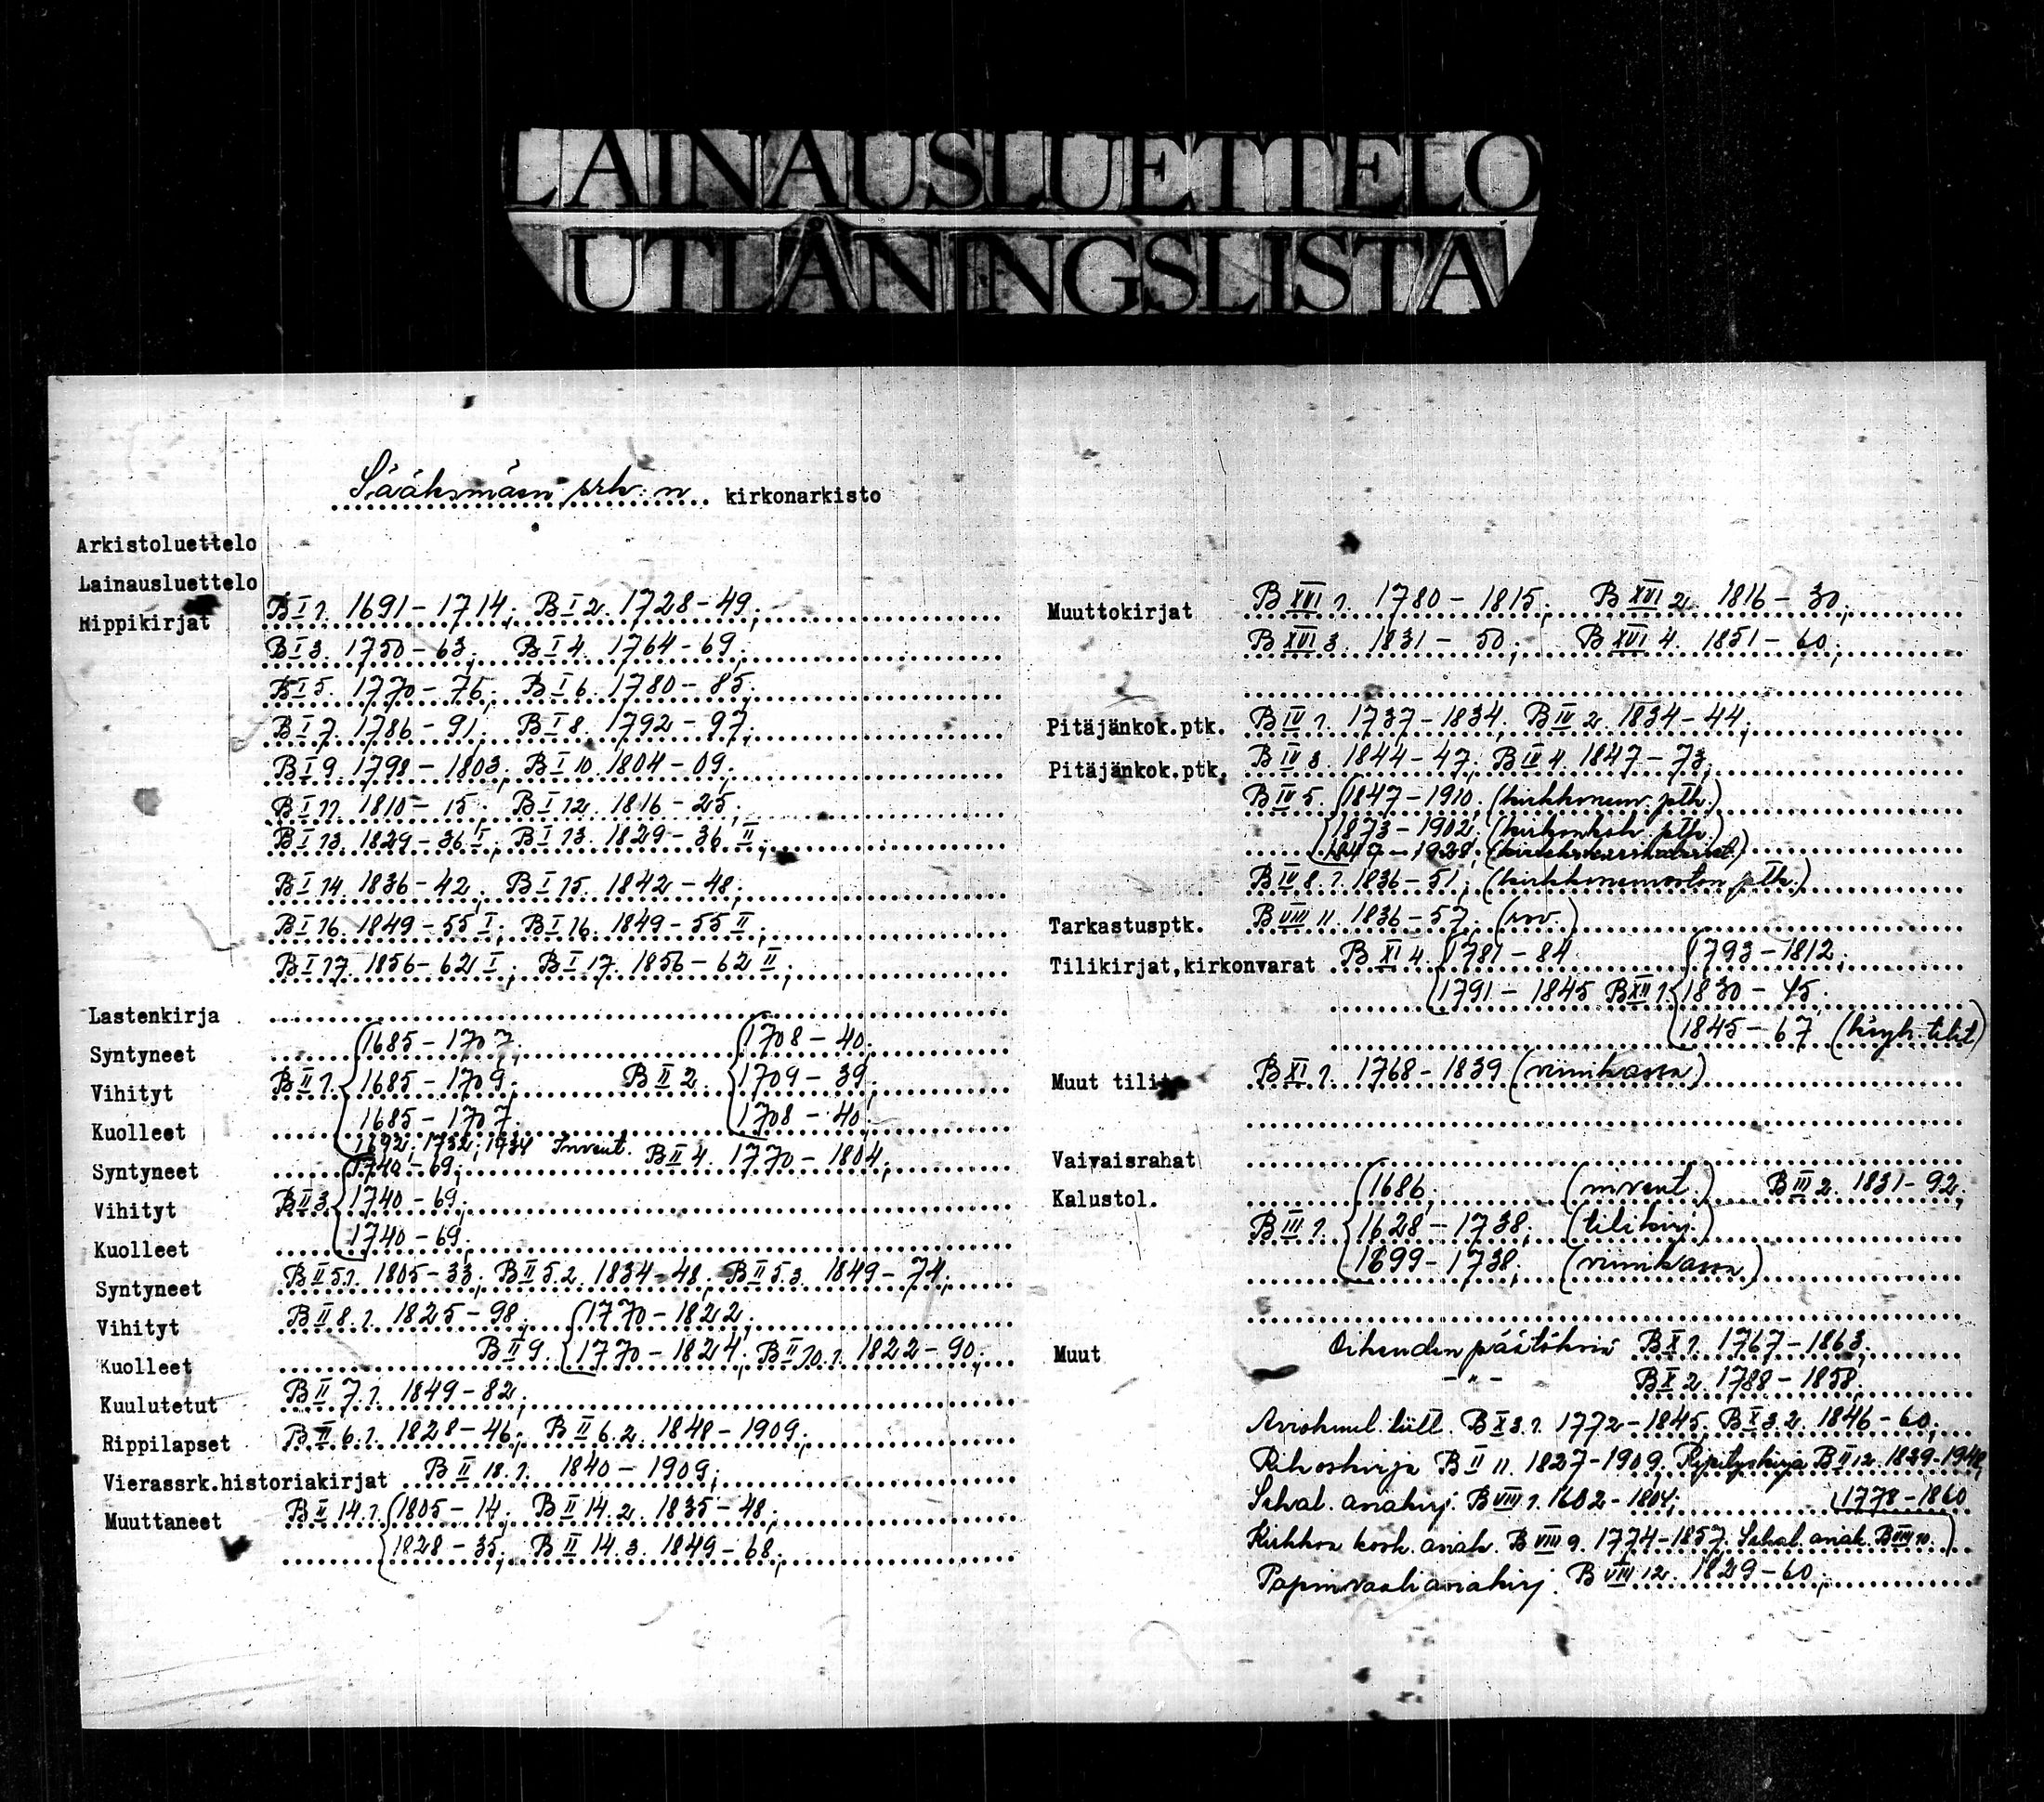 LAINAUSLUETTELO
UTLÅNINGSLISTA
Sääksmäen srk:n kirkonarkisto
Arkistoluettelo
Lainausluettelo
Rippikirjat B I 1. 1691-1714; B I 2. 1728-49;
B I 3. 1750-63; B I 4. 1764-69;
B I 5. 1770-76; B I 6. 1780-85;
B I 7. 1786-91; B I 8. 1792-97;
B I 9. 1798-1803; B I 10. 1804-09;
B I 11. 1810-15; B I 12. 1816-25;
B I 13. 1829-36 I; B I 13. 1829-36 II;
B I 14. 1836-42; B I 15. 1842-48;
B I 16. 1849-55 I; B I 16. 1849-55 II;
B I 17. 1856-62 I; B I 17. 1856-62 II;
Lastenkirja
Syntyneet 1685-1707; 1708-40;
Vihityt B II 1. 1685-1709; B II 2. 1709-39;
Kuolleet 1685-1707; 1708-40;
1692; 1732; 1734 Invent.
Syntyneet 1740-69; B II 4. 1770-1804;
Vihityt B II 3. 1740-69;
Kuolleet 1740-69;
Syntyneet B II 5.1. 1805-33; B II 5.2. 1834-48; B II 5.3. 1849-74;
Vihityt B II 8.1. 1825-98; 1770-1822;
Kuolleet B II 9. 1770-1824; B II 10.1. 1822-90;
Kuulutetut B II 7.1. 1849-82;
Rippilapset B II 6.1. 1828-46; B II 6.2. 1848-1909;
Vierassrk.historiakirjat B II 18.1. 1840-1909;
Muuttaneet B II 14.1. 1805-14; B II 14.2. 1835-48;
1828-35; B II 14.3. 1849-68;
Muuttokirjat B XVI 1. 1780-1815; B XVI 2. 1816-30;
B XVI 3. 1831-50; B XVI 4. 1851-60;
Pitäjänkok.ptk. B IV 1. 1737-1834; B IV 2. 1834-44;
Pitäjänkok.ptk. B IV 3. 1844-47; B IV 4. 1847-73;
B IV 5. 1847-1910; (kirkkoneuv. ptk.)
1873-1902; (kirkonkok. ptk.)
1847-1928;
B IV 8.1. 1836-51; (kirkkoneuvoston ptk.)
Tarkastusptk. B VIII 11. 1836-57; (rov.)
Tilikirjat,kirkonvarat B XI 4. 1781-84 1793-1812;
1791-1845 B XII 1. 1830-45;
1845-67 (köyh. tilit)
Muut tilit B XI 1. 1768-1839 (viinikassa)
Vaivaisrahat
Kalustol. 1686; (invent.) B III 2. 1831-92;
B III 1. 1628-1738; (tilikirj.)
1699-1738; (viinikassa)
Muut Oikeuden päätöksiä B X 1. 1767-1863;
-"- B X 2. 1788-1858;
Aviokuul. tiill. B X 3.1. 1772-1845; B X 3.2. 1846-60;
Rikoskirja B II 11. 1827-1909; Ripityskirja B II 12. 1829-1948;
Sekal. asiakirj. B VIII 1. 1602-1804; 1778-1860
Kirkkoa kosk. asiak. B VIII 9. 1774-1857; Sekal. asiak. B VIII 10.
Papinvaaliasiakirj. B VIII 12. 1829-60;